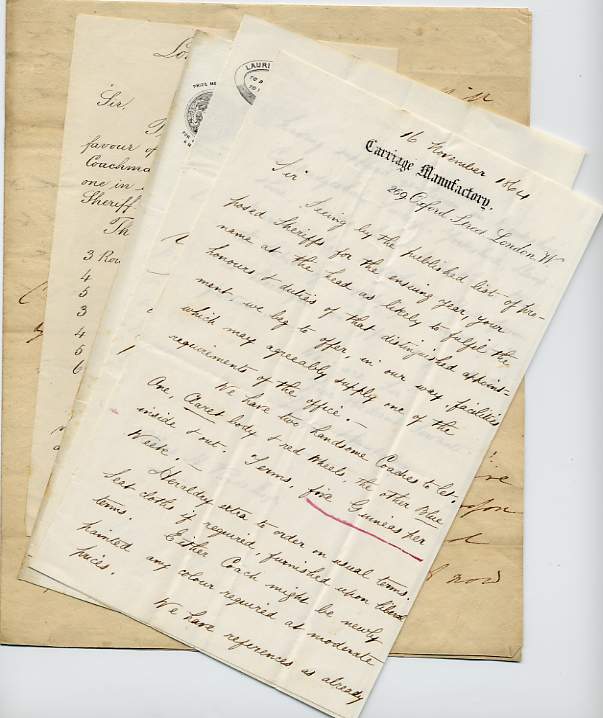 16 November 1864
Carriage Manufactory.
269 Oxford Street London. W
Sir
Seeing by the published list of pro-
posed Sheriffs for the ensuing year, your
name at the head as likely to fulfil the
honours & duties of that distinguished appoint-
ment, we beg to offer in our way, facilities
which may agreeably supply one of the
requirements of the office. —
We have two handsome Coaches to let.
One, Claret body & red wheels, the other Blue
inside & out. Terms, five Guineas per
Week. —
Heraldry extra to order on usual terms.
Seat cloths if required, furnished upon liberal
terms.
Either Coach might be newly
painted any colour required at moderate
prices.
We have references as already
LAURI
PRIZE ME
FOR
Sir,
favour of
Coachma
one in
Sheriff
Th
3 Row
4
5
3
4
5
6
now